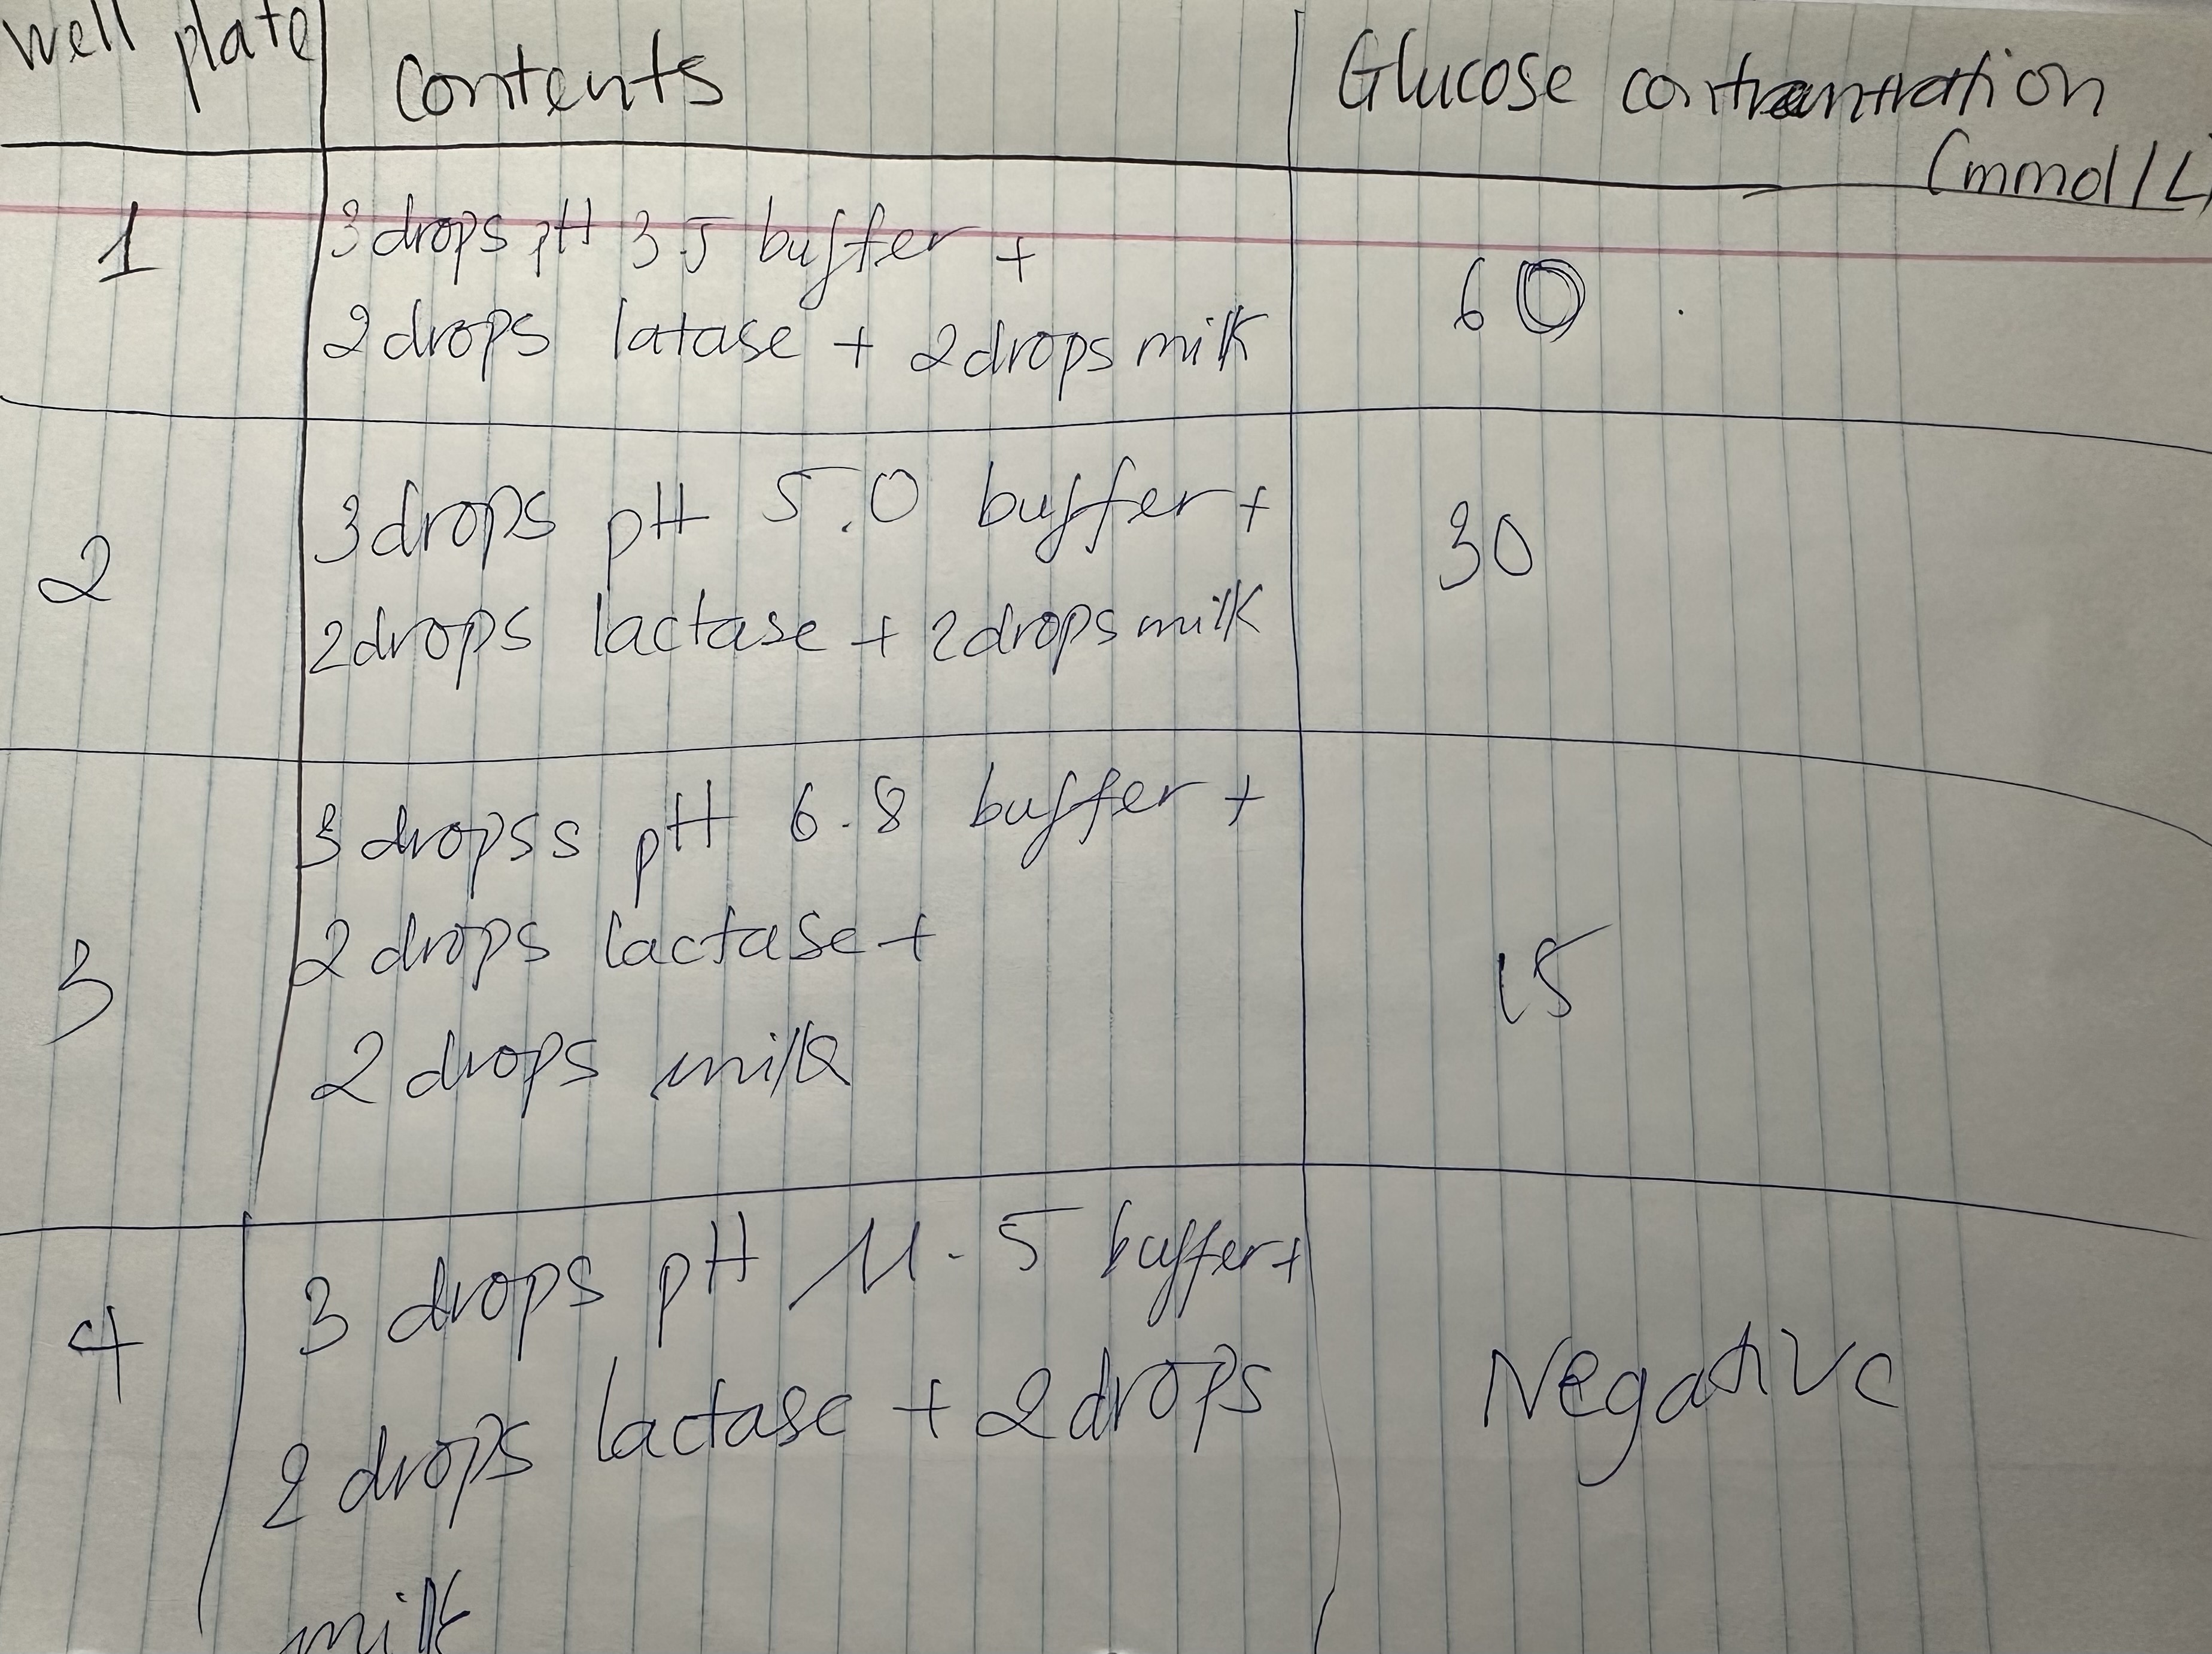 well plate
Contents
Glucose contranntration
(mmol/L)
1
3 drops pH 3.5 buffer +
2 drops latase + 2 drops milk
60
2
3 drops pH 5.0 buffer +
2 drops lactase + 2 drops milk
30
3
3 dropss pH 6.8 buffer +
2 drops lactase +
2 drops milk
15
4
3 drops pH 11.5 buffer +
2 drops lactase + 2 drops
milk
Negative